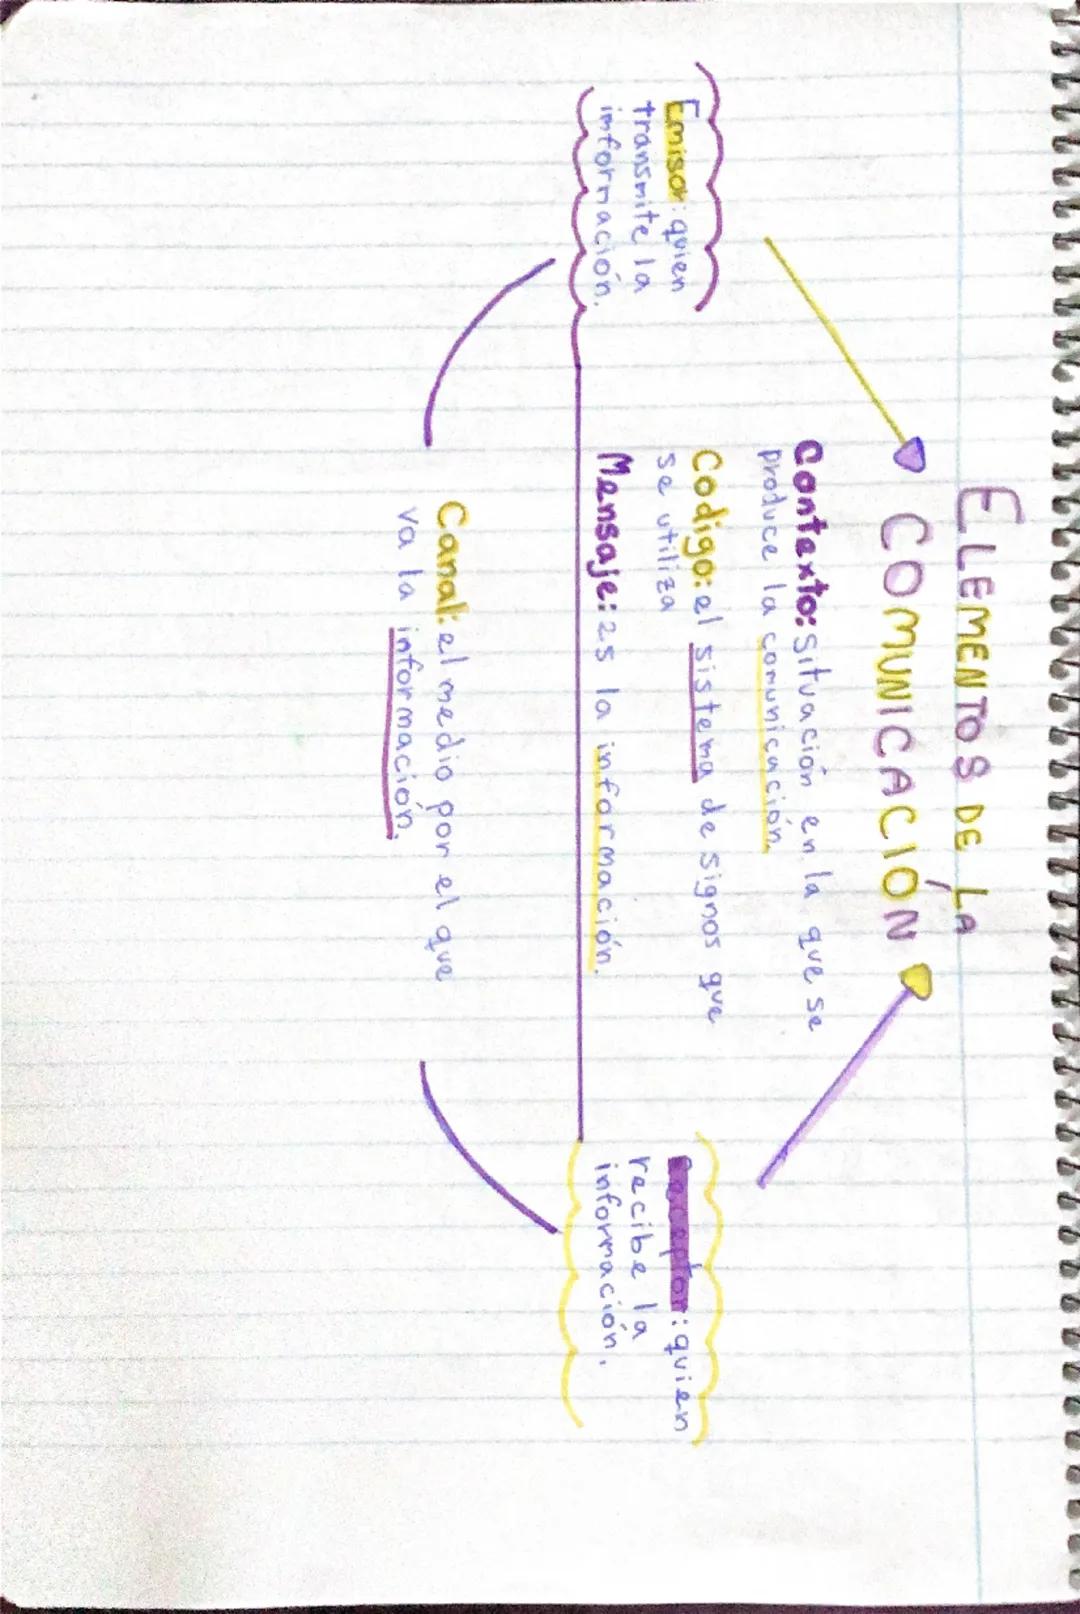 ELEMENTOS DE LA
COMUNICACIÓN
Contexto: Situación en la que se
produce la comunicación.
Emisor: quien
transmite la
imformación.
Codigo: el sistema de signos que
se utiliza
Mensaje: es la información.
Receptor: quien
recibe la
información.
Canal: el medio por el que
va la información.